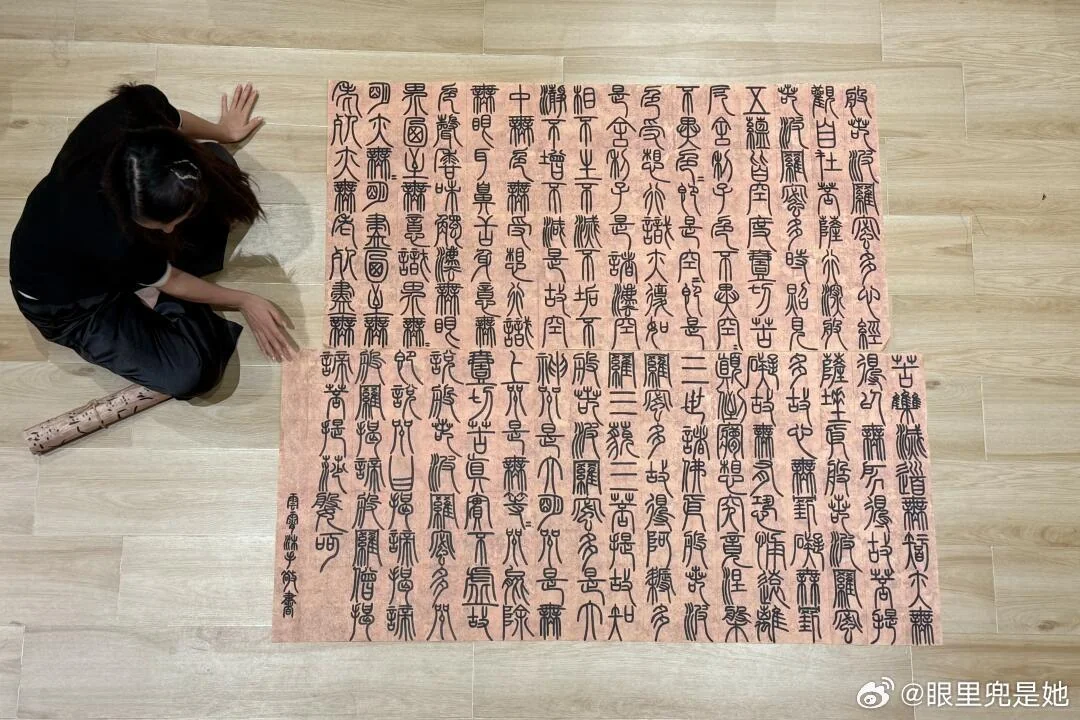 般若波羅蜜多心經
觀自在菩薩行深般
若波羅蜜多時照見
五蘊皆空度壹切苦
厄舍利子色不異空=
不異色=即是空=即是
色受想行識亦復如
是舍利子是諸法空
相不生不滅不垢不
瀞不增不減是故空
中無色無受想行識
無眼耳鼻舌身意無
色聲香味觸法無眼
界乃至無意識界無=
明亦無=明盡乃至無
老死亦無老死盡無
苦集滅道無智亦無
得以無所得故菩提
薩埵依般若波羅蜜
多故心無罣礙無罣
礙故無有恐怖遠離
顛倒夢想究竟涅槃
三世諸佛依般若波
羅蜜多故得阿耨多
羅三藐三菩提故知
般若波羅蜜多是大
神咒是大明咒是無
上咒是無等=咒能除
壹切苦真實不虛故
說般若波羅蜜多咒
即說咒曰揭諦揭諦
般羅揭諦般羅僧揭
諦菩提莎婆呵
沐手敬書
@眼里兜是她